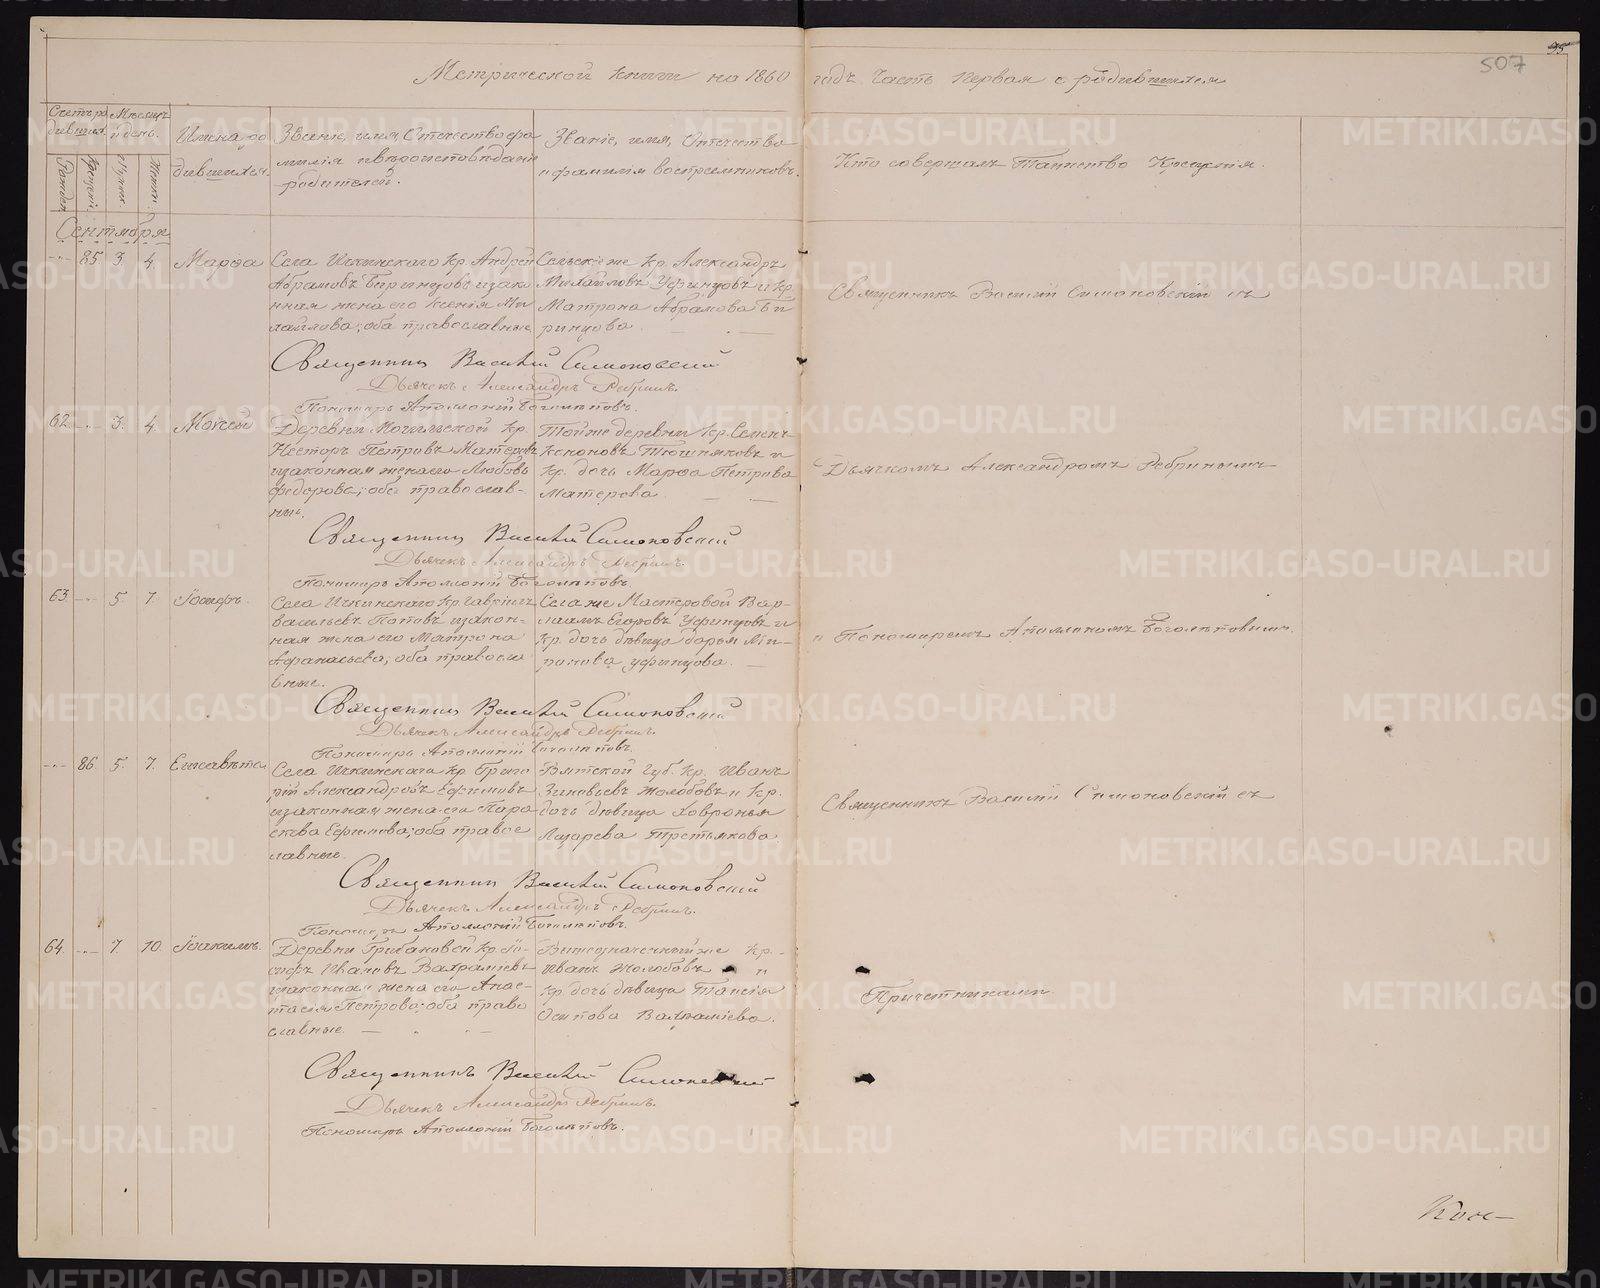 95
507
Метрической книги на 1860 годъ часть первая о родившихся
Счетъ ро Мѣсяцъ
дивших. и день.
Имена ро
дившихся.
Званіе, имя, Отчество фа
милія и вѣроисповѣданіе
родителей.
Званіе, имя, Отчество
и фамилія воспреемниковъ.
Кто совершалъ Таинство Крещенія.
Сентября
85. 3. 4. Марѳа
Села Ичкинскаго кр. Андрей
Абрамовъ Биринцовъ и закон
ная жена его Ксенія Ми
хайлова; оба православные
Сельскіе же кр. Александръ
Михайловъ Уфинцовъ и кр
Матрона Абрамова Би
ринцова.
Священникъ Василій Симоновскій съ
Священникъ Василій Симоновскій
Дьячекъ Александръ Ребринъ.
Пономарь Аполлоній Боголѣповъ.
62 3. 4. Моисей
Деревни Могильской кр.
Несторъ Петровъ Матеровъ
и законная жена его Любовь
Федорова; оба православ-
ные.
Той же деревни кр. Семенъ
Ксконовъ Тюшняковъ и
кр. дочь Марѳа Петрова
Матерова
Дьячкомъ Александромъ Ребринымъ
Священникъ Василій Симоновскій
Дьячекъ Александръ Ребринъ.
Пономарь Аполлоній Боголѣповъ.
63. 5. 7. Іосифъ.
Села Ичкинскаго кр. Гавріилъ
Васильевъ Поповъ и закон-
ная жена его Матрона
Афанасьева; оба правосла
вные.
Села же Мастеровой Вар-
лаамъ Егоровъ Уфинцовъ и
кр. дочь дѣвица Дарья Ми-
ронова Уфинцова.
и Пономаремъ Аполлономъ Боголѣповымъ.
Священникъ Василій Симоновскій
Дьячекъ Александръ Ребринъ.
Пономарь Аполлоній Боголѣповъ.
86. 5. 7. Елисавета
Села Ичкинскаго кр. Григо
рій Александровъ Ефимовъ
и законная жена его Пара
скева Ефимова; оба правос
лавные.
Вятской Губ. кр. Иванъ
Зиновьевъ Жолобовъ и кр.
дочь дѣвица Ховронья
Лазарева Третьякова
Священникъ Василій Симоновскій съ
Священникъ Василій Симоновскій
Дьячекъ Александръ Ребринъ.
Пономарь Аполлоній Боголѣповъ.
64. 7. 10. Іоакимъ.
Деревни Грибановой кр. Іо-
сифъ Ивановъ Варламіевъ
и законная жена его Анас-
тасія Петрова; оба право
славные
Вышеозначенный же кр.
Иванъ Жолобовъ и
кр. дочь дѣвица Таисія
Осипова Варламіева.
Причетниками
Священникъ Василій Симоновскій
Дьячекъ Александръ Ребринъ.
Пономарь Аполлоній Боголѣповъ.